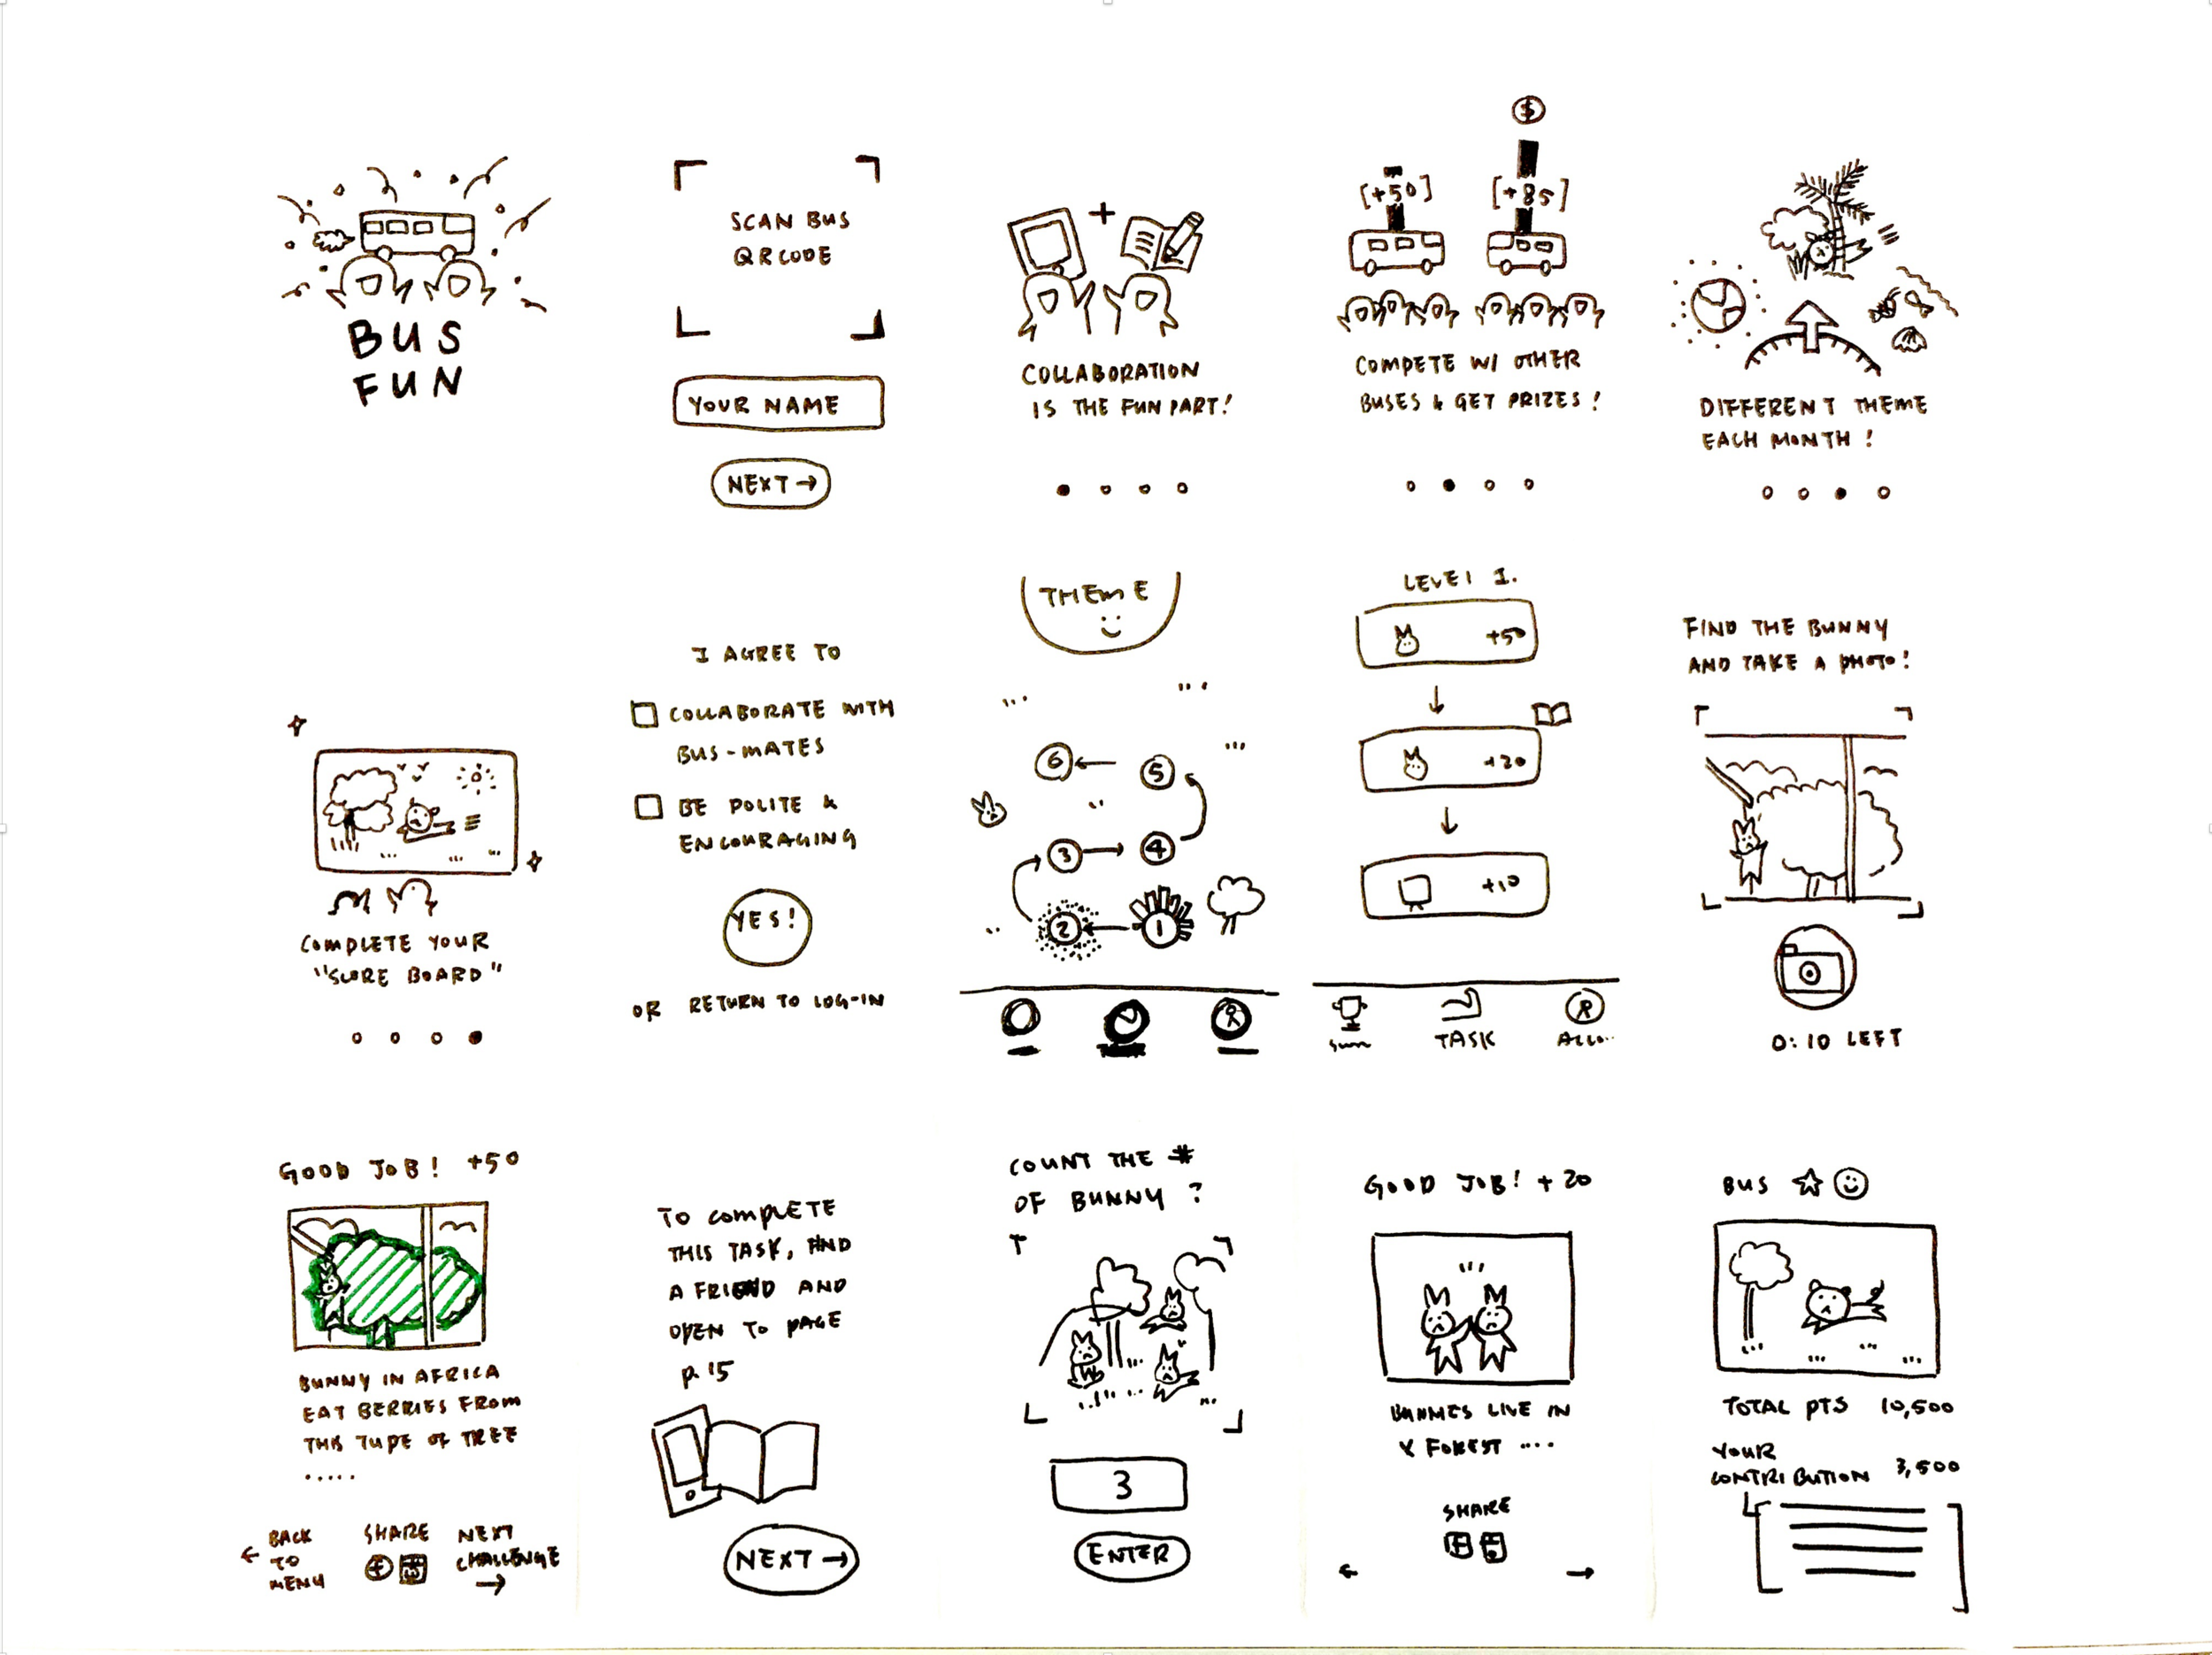 BUS
FUN
SCAN BUS
QR CODE
YOUR NAME
NEXT →
+
COLLABORATION
IS THE FUN PART!
$
[+50]
[+85]
COMPETE W/ OTHER
BUSES & GET PRIZES!
DIFFERENT THEME
EACH MONTH!
COMPLETE YOUR
"SCORE BOARD"
I AGREE TO
COLLABORATE WITH
BUS-MATES
BE POLITE &
ENCOURAGING
YES!
OR RETURN TO LOG-IN
THEME
6 ← 5
3 → 4
2 ← 1
LEVEL 1.
+50
+20
+10
TASK
ACCO..
FIND THE BUNNY
AND TAKE A PHOTO!
0:10 LEFT
GOOD JOB! +50
BUNNY IN AFRICA
EAT BERRIES FROM
THIS TYPE OF TREE
.....
← BACK
TO
MENU
SHARE
NEXT
CHALLENGE
→
TO COMPLETE
THIS TASK, FIND
A FRIEND AND
OPEN TO PAGE
p. 15
NEXT →
COUNT THE #
OF BUNNY?
3
ENTER
GOOD JOB! +20
BUNNIES LIVE IN
X FOREST ....
SHARE
← →
BUS
TOTAL PTS 10,500
YOUR
CONTRIBUTION 3,500